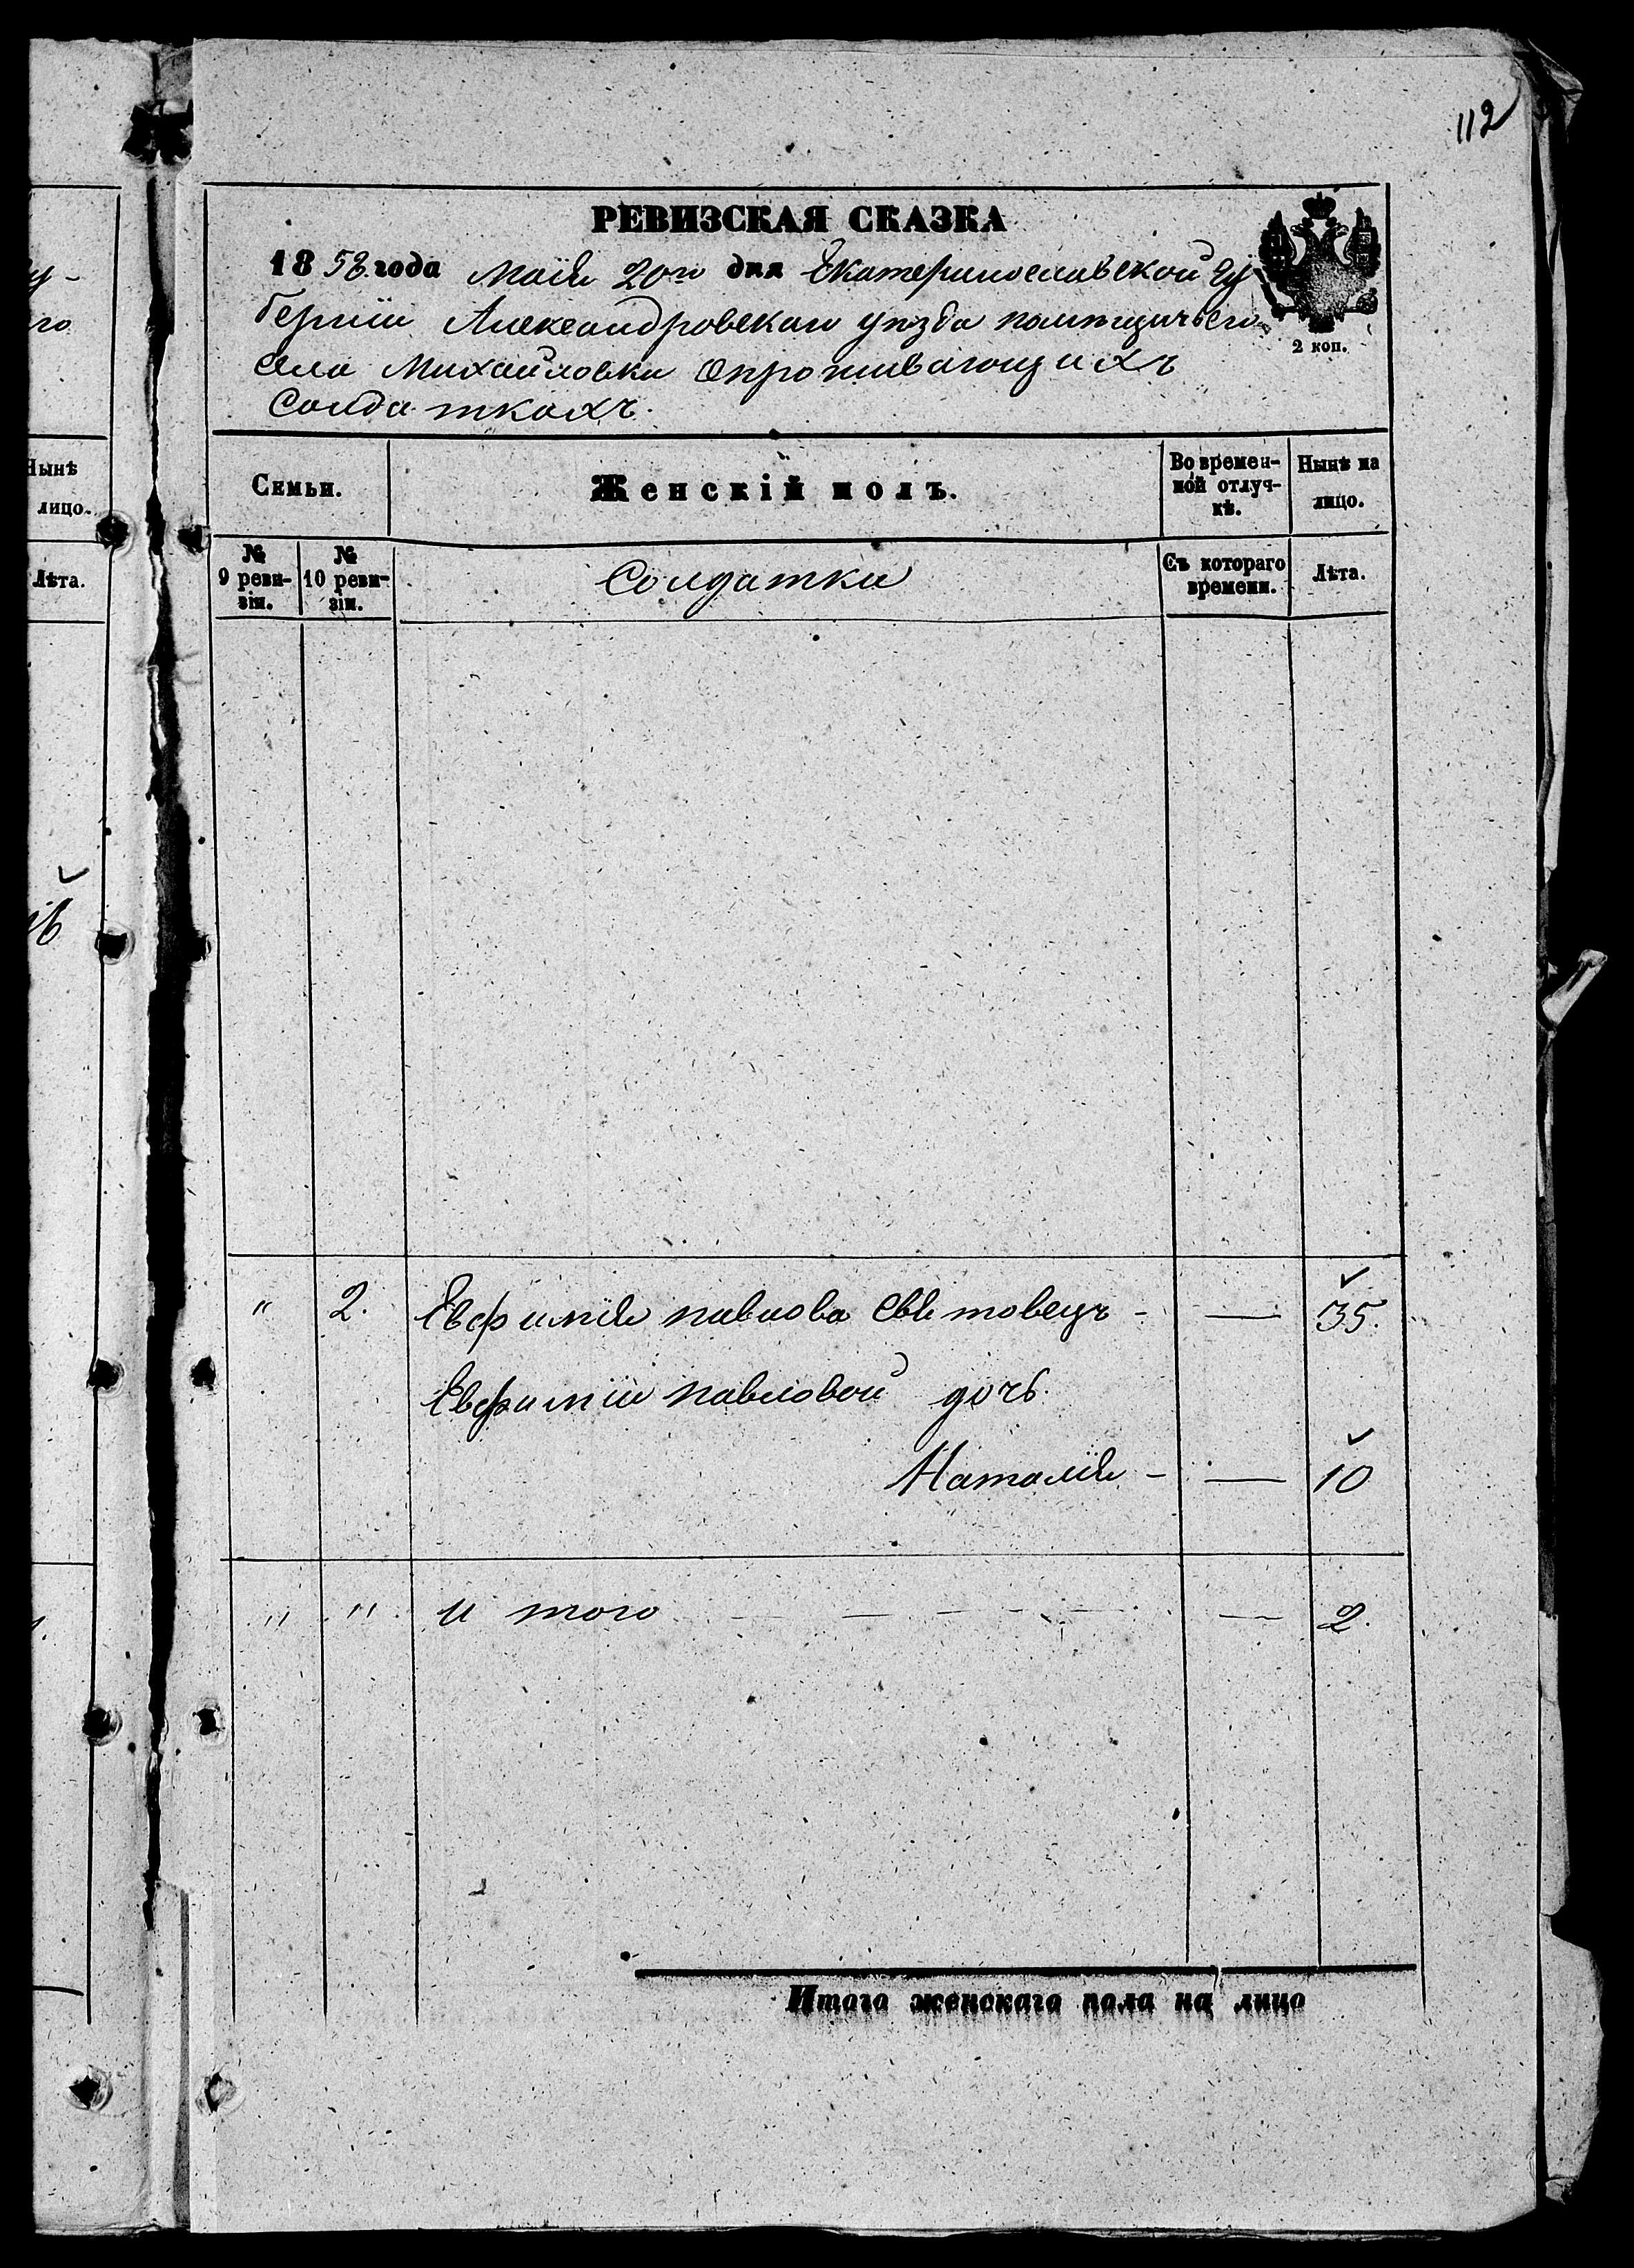 112
РЕВИЗСКАЯ СКАЗКА
1858 года Маія 20го дня Екатеринославской Гу
берніи Александровскаго уѣзда помѣщичьего
села Михайловки опроживающихъ
Солдаткахъ.
2 коп.
Семьи.
Женскій полъ.
Во времен-
ной отлуч-
кѣ.
Нынѣ на
лицо.
№
9 реви-
зіи.
№
10 реви-
зіи.
Солдатки
Съ котораго
времени.
Лѣта.
" 2. Евфимія павлова — 35.
Евфиміи павловой дочь.
Наталія - — 10
" " и того — 2.
Итого женскаго пола на лицо
Нынѣ
лицо.
Лѣта.